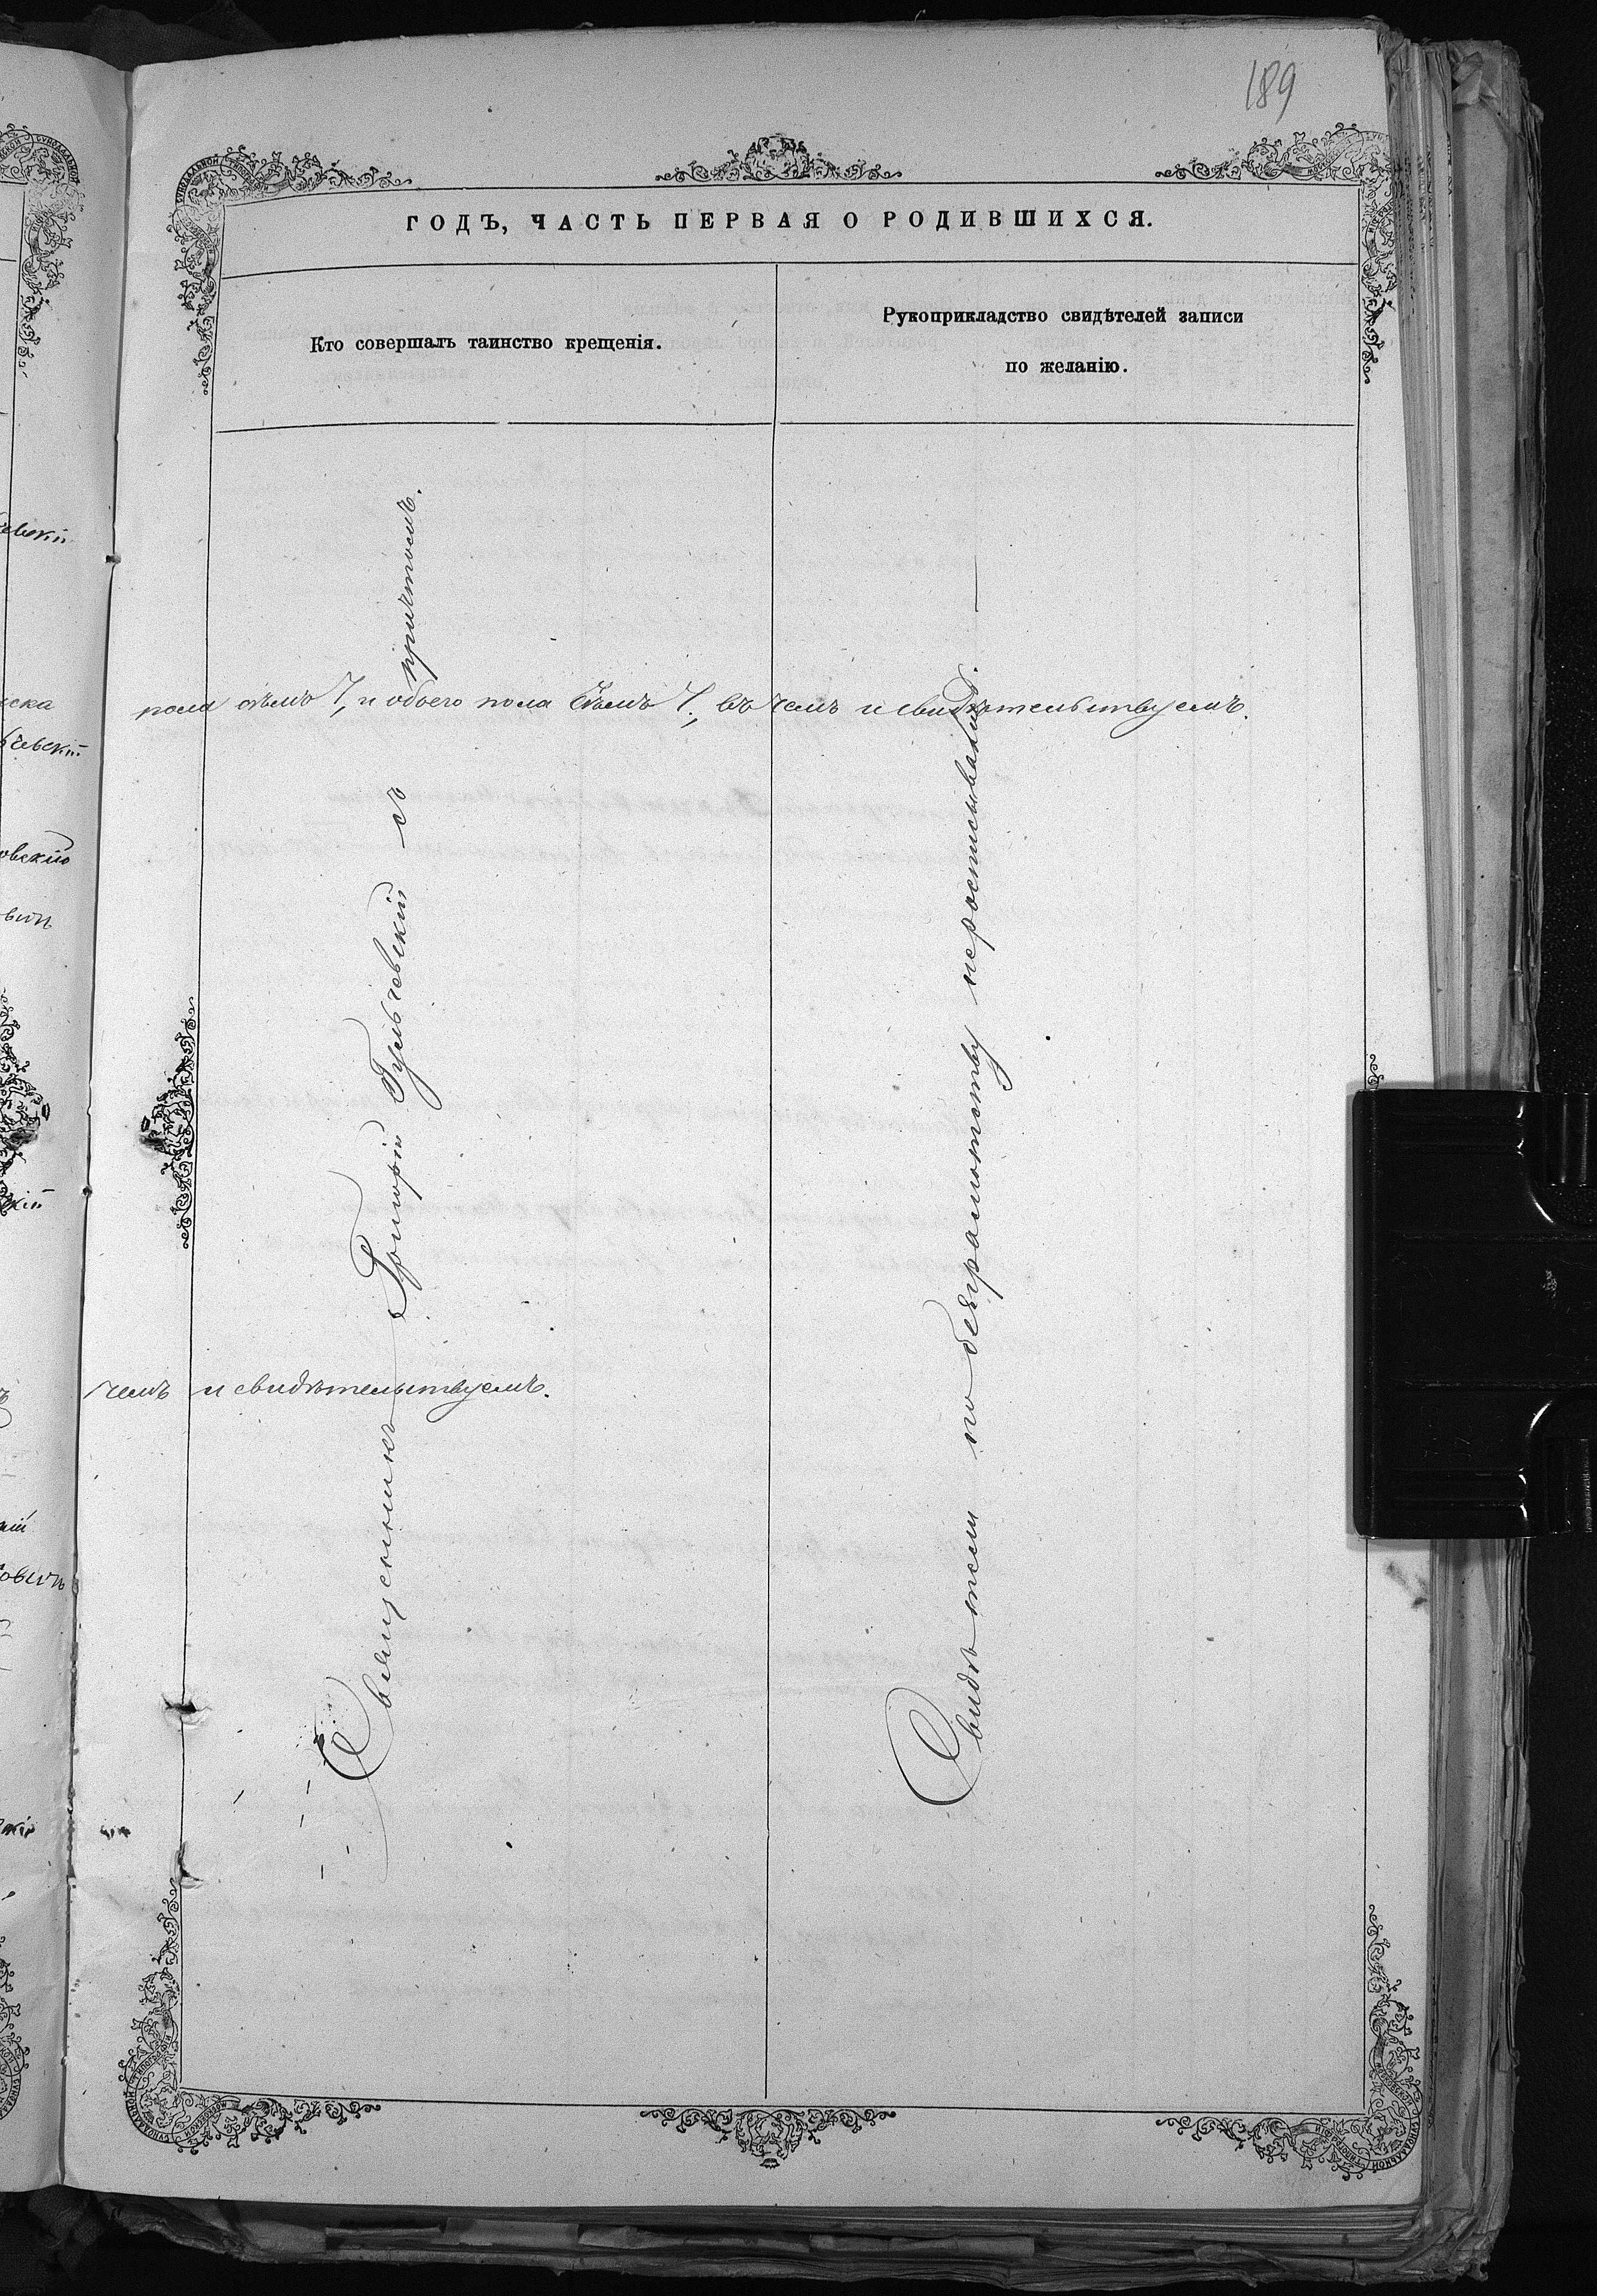 189
ГОДЪ, ЧАСТЬ ПЕРВАЯ О РОДИВШИХСЯ.
Кто совершалъ таинство крещенія.
Рукоприкладство свидѣтелей записи
по желанію.
пола семь 7, и обоего пола семь 7, въ чемъ и свидѣтельствуемъ.
чемъ и свидѣтельствуемъ.
Священникъ Григорій Гульчевскій съ причтомъ.
Свидѣтели по безграмотству неростисывались.